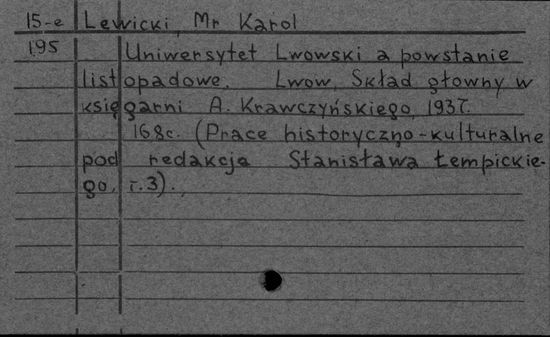 15-e Lewicki, Mr Karol
195 Uniwersytet Lwowski a powstanie
listopadowe. Lwow, Skład głowny w
księgarni A. Krawczyńskiego, 1937.
168c. (Prace historyczno-kulturalne
pod redakcja Stanisława Łempickie-
go, т.3).